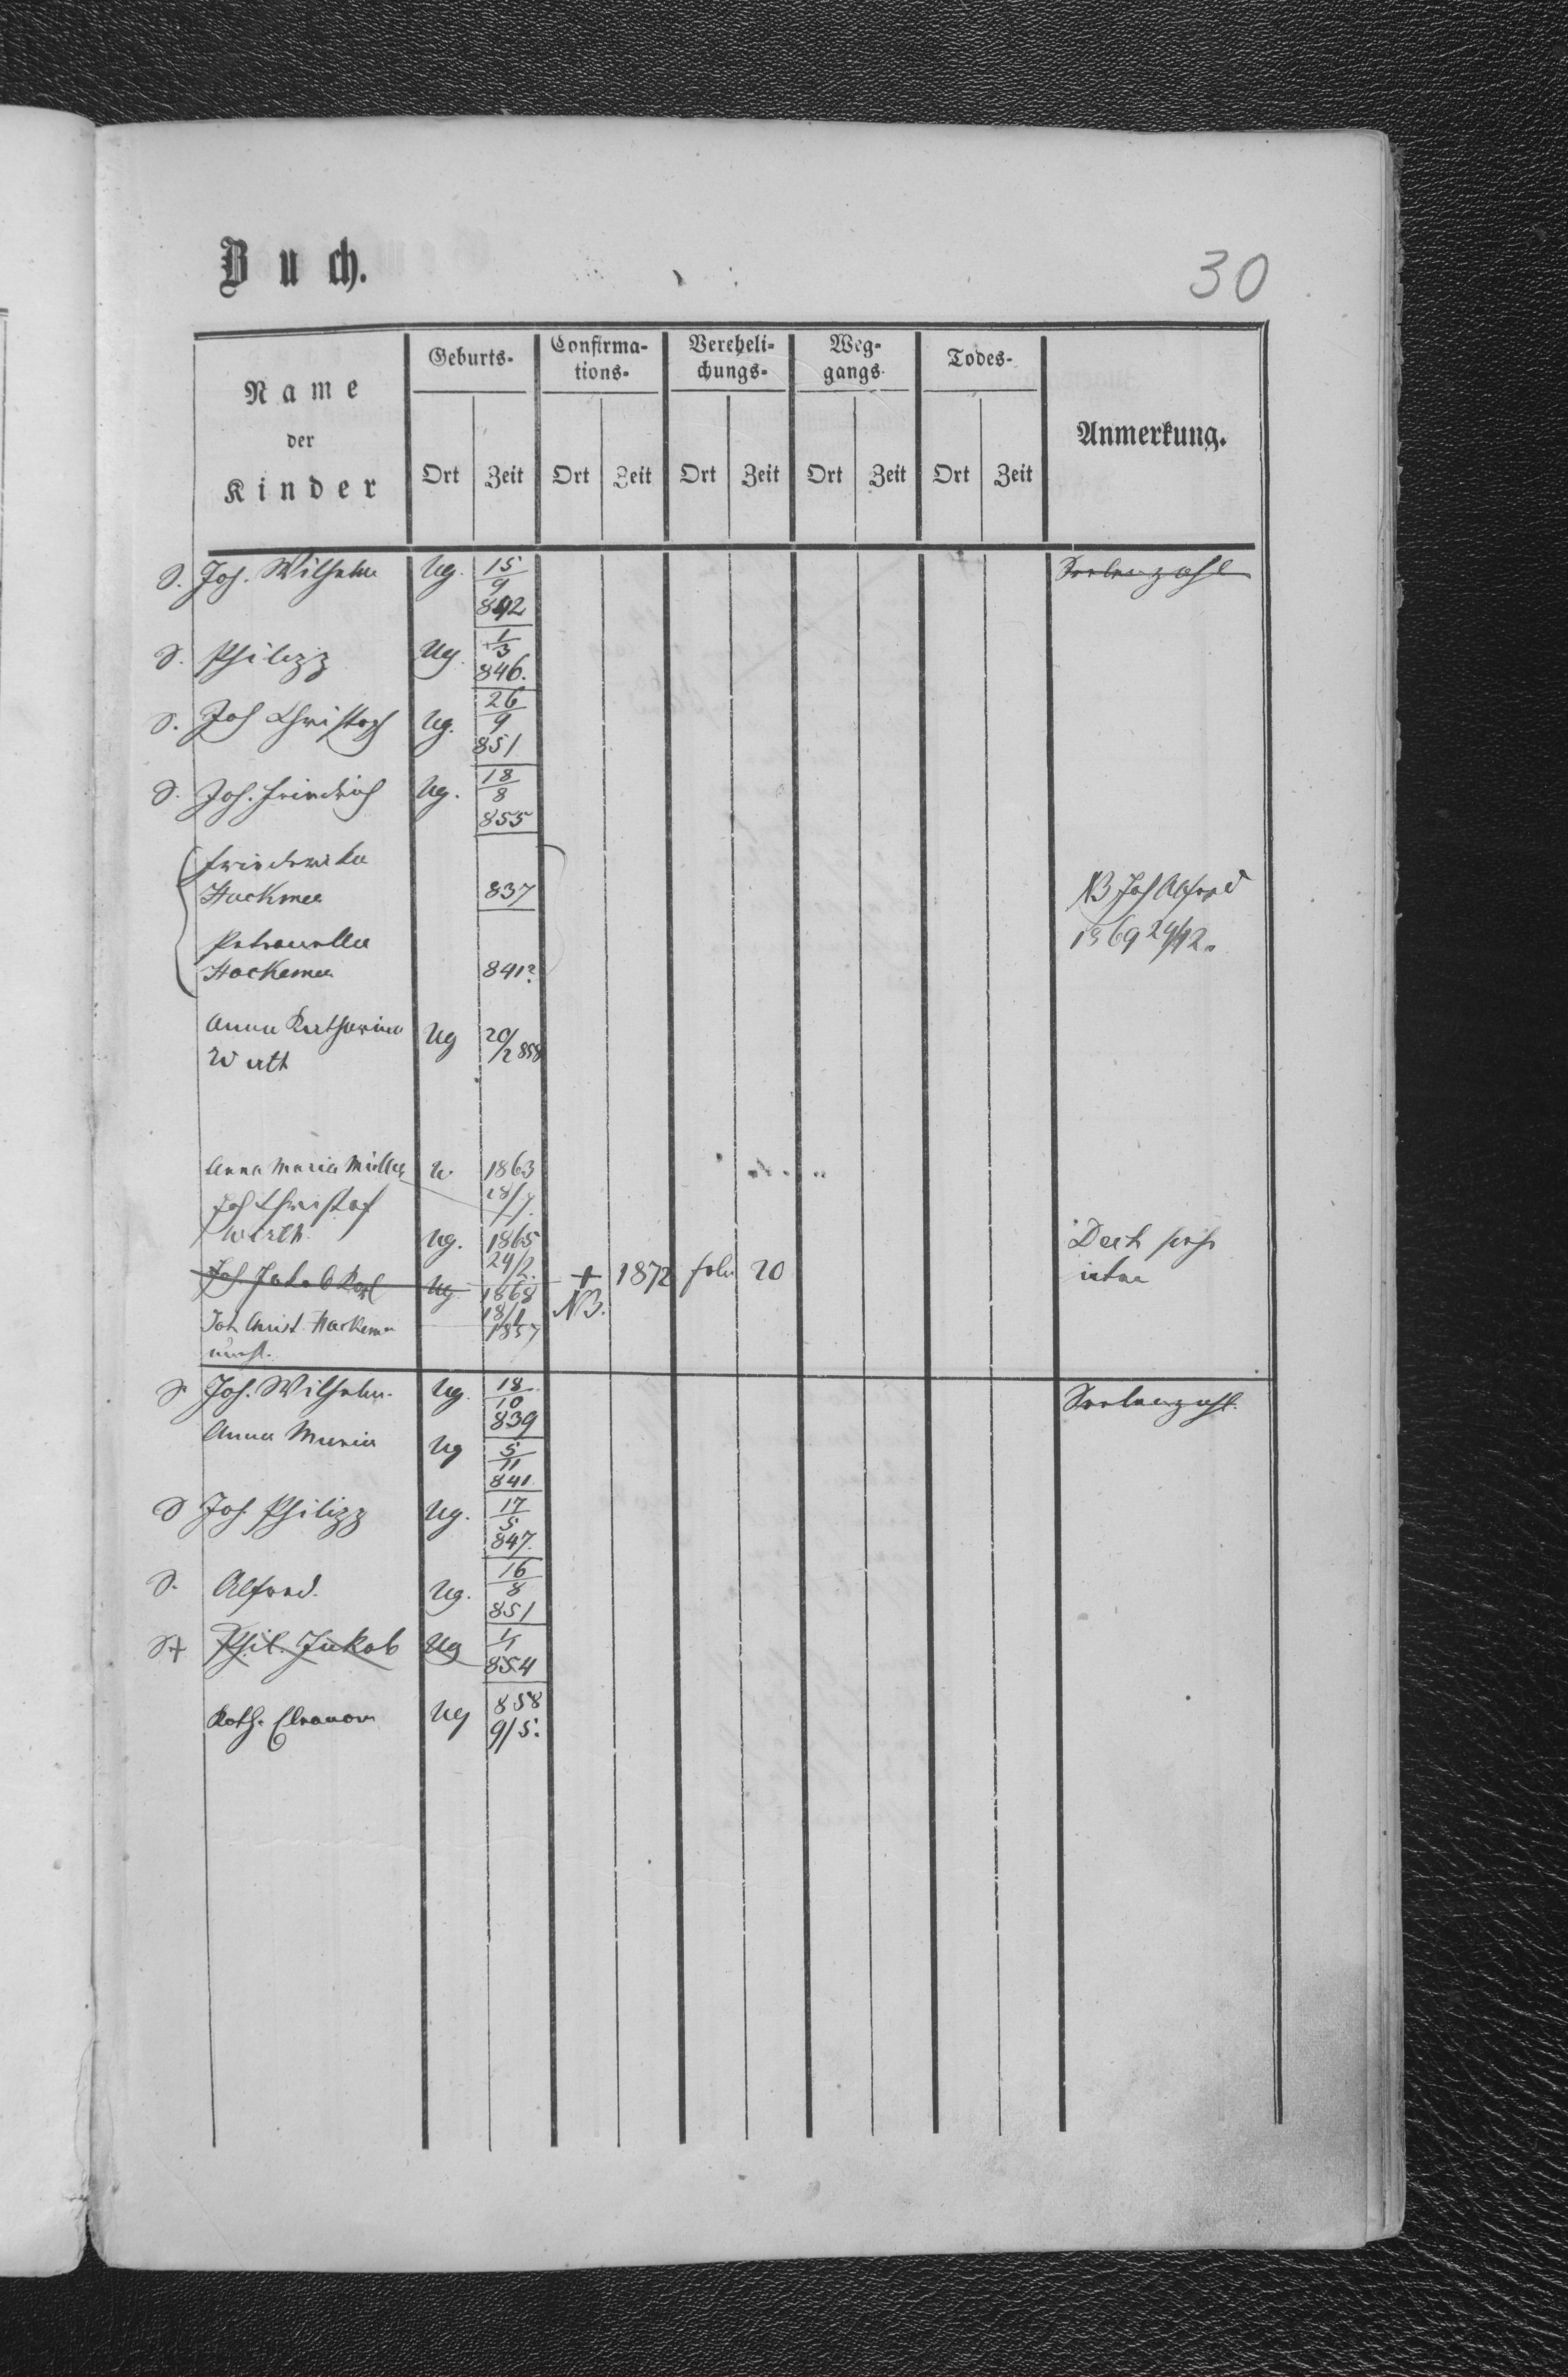 Buch.
30
Name der Kinder
Geburts-
Confirma-tions-
Vereheli-chungs-
Weg-gangs-
Todes-
Anmerkung.
Ort Zeit Ort Zeit Ort Zeit Ort Zeit Ort Zeit
S. Joh. Wilhelm Ug. 15/9 842 Seelenzahl
S. Philipp Ug. 1/3 846.
S. Joh Christoph Ug. 26/9 851
S. Joh. Friedrich Ug. 18/8 855
Friederika
Hackmer 837 NB Joh Alfred
Petronella 1869 29/12.
Hackemer 841?
Anna Katharina Ug 20/2 858
Wirth
Anna Maria Müller U. 1863 28/7.
Joh Christof
Wirth. Ug. 1865 24/2.
Joh. Jakob Ug. 1868 18/1 + 1872 20
NB.
Joh Christ. Hackemer 1857
S Joh. Wilhelm. Ug. 18/10 839 Seelenzahl.
Anna Maria Ug 5/11 841
S Joh. Philipp Ug. 17/5 847.
S. Alfred. Ug. 16/8 851
S+ Phil. Jakob Ug 1/1 854
Kath. Eleanor Ug 858 9/5.